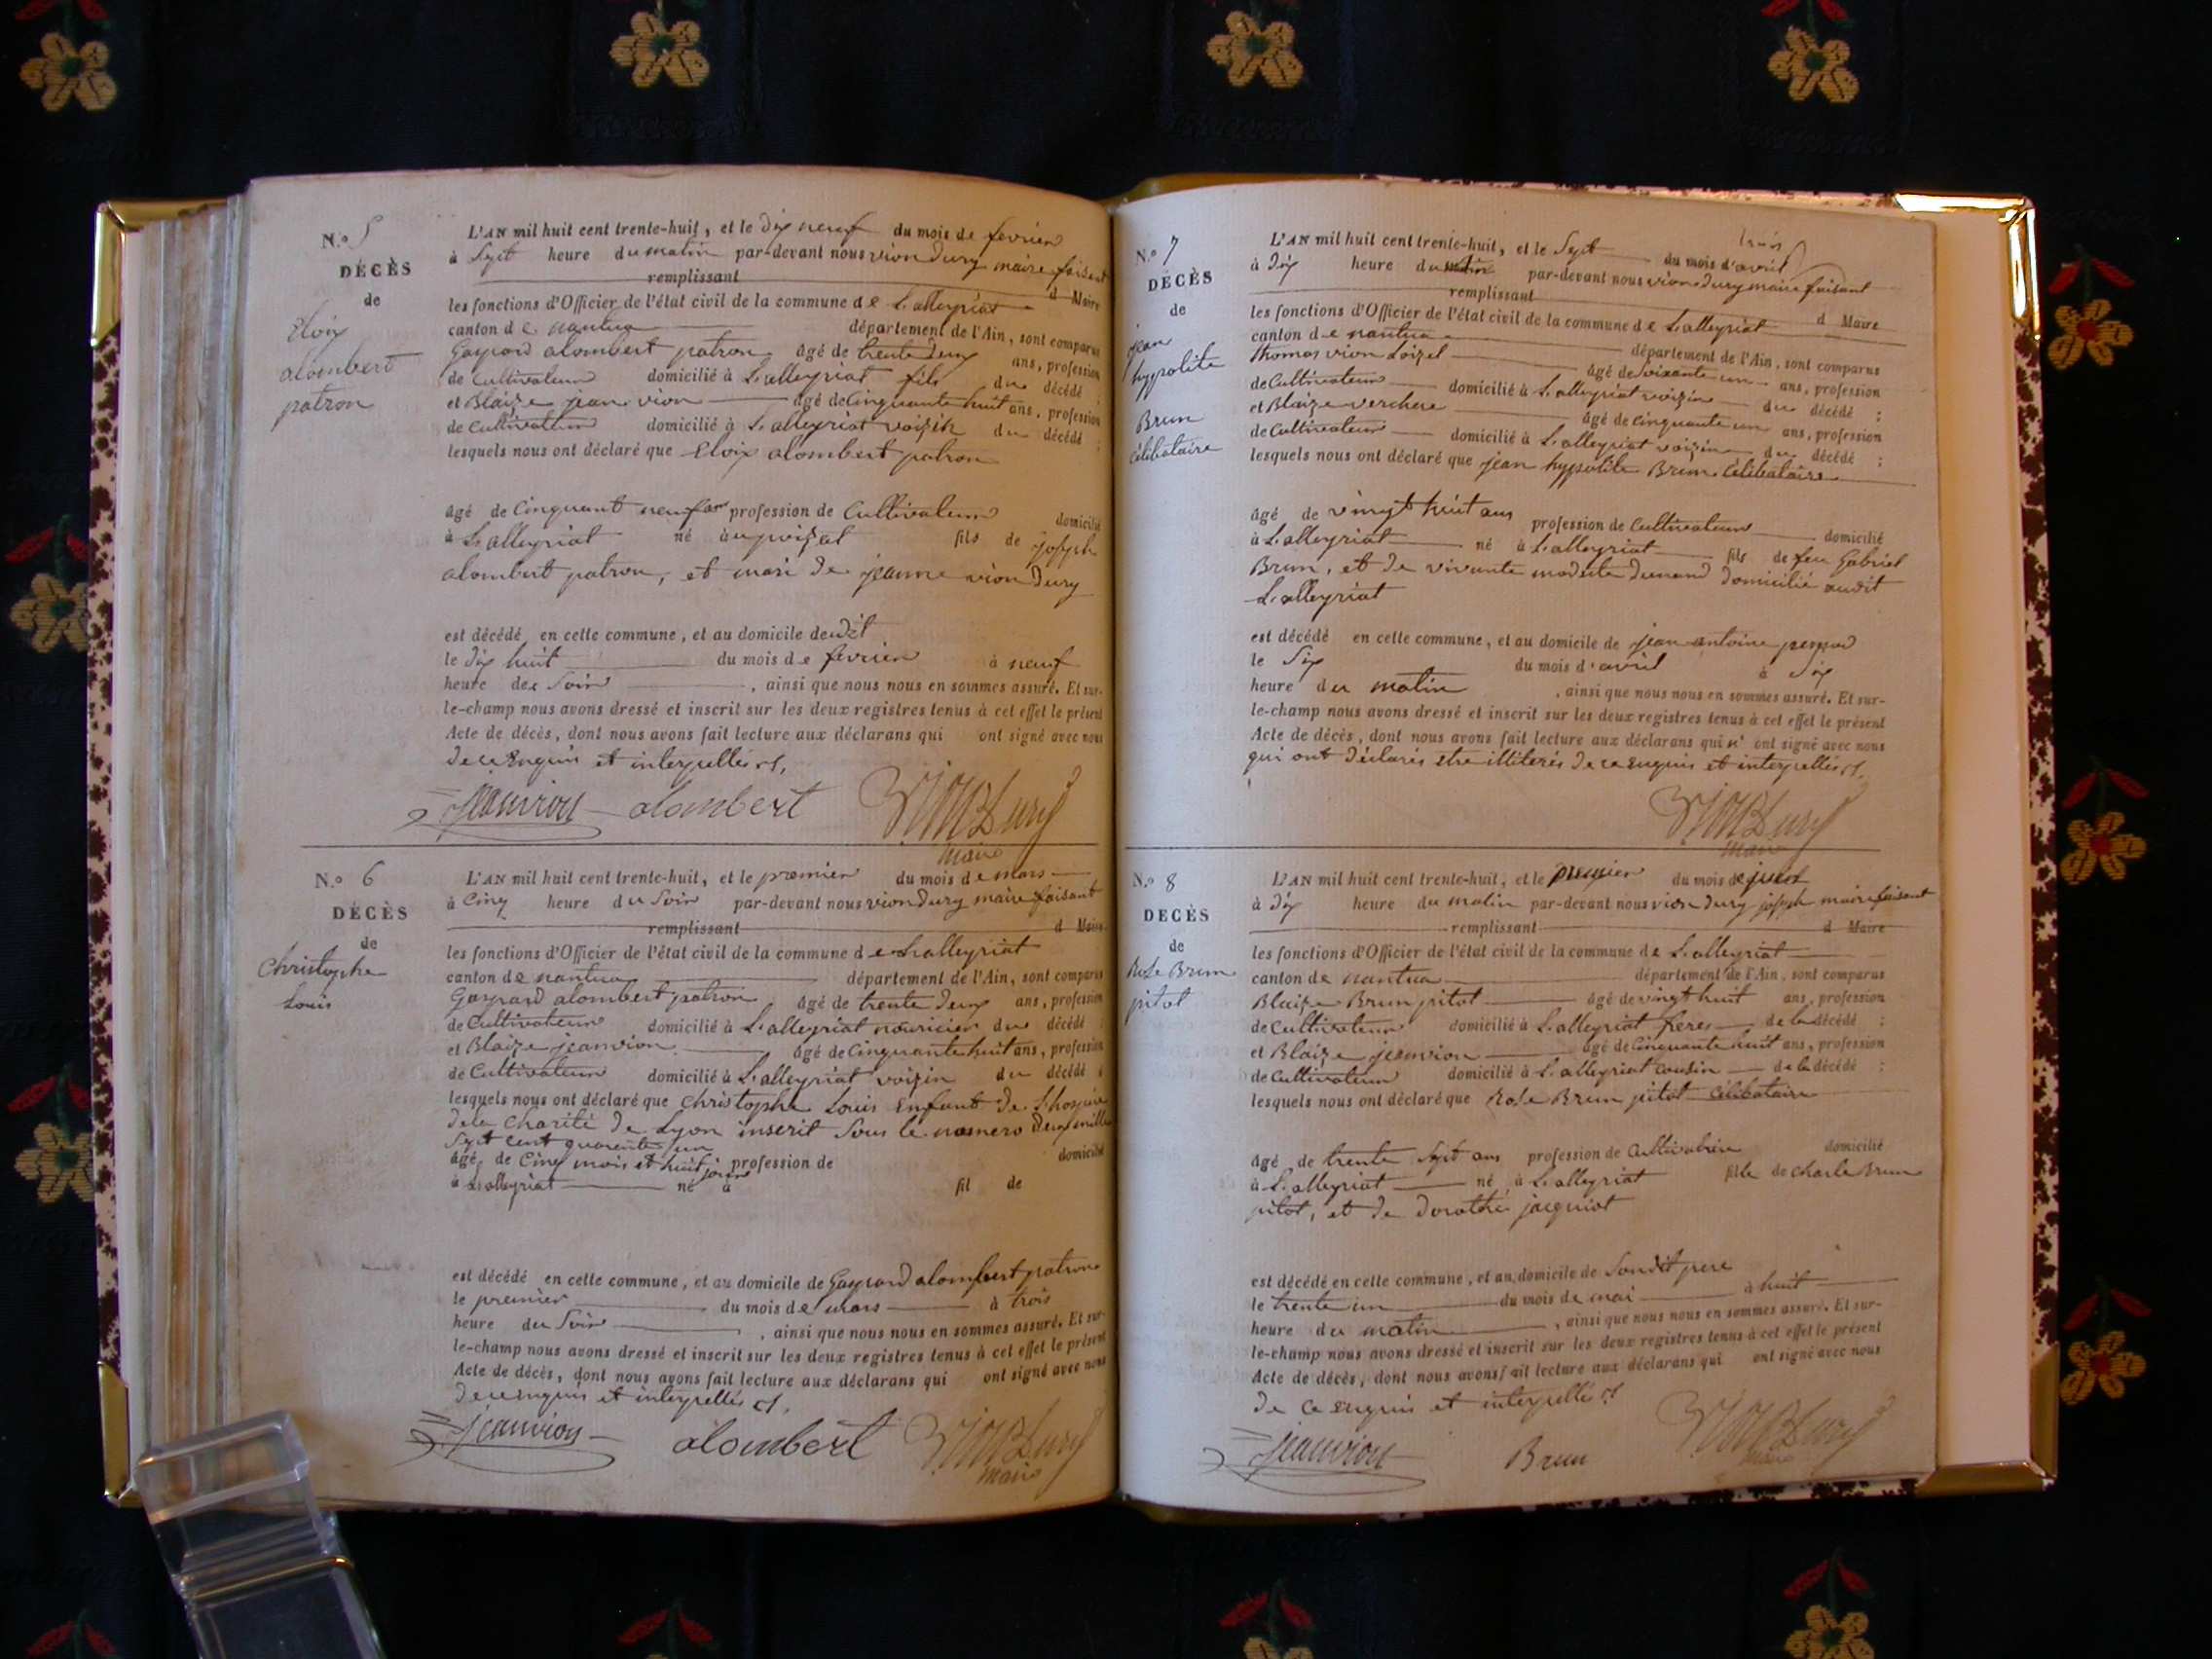 N.º 5
DÉCÈS
de
Eloix
alombert
patron
L'AN mil huit cent trente-huit, et le dix neuf du mois de fevrier
à Sept heure du matin par-devant nous vion dury maire faisant
remplissant d Maire
les fonctions d'Officier de l'état civil de la commune de L'alleyriat
canton de nantua département de l'Ain, sont comparus
Gaspard alombert patron âgé de trente deux ans, profession
de Cultivateur domicilié à L'alleyriat fils du décédé ;
et Blaize jean vion âgé de Cinquante huit ans, profession
de Cultivateur domicilié à L'alleyriat voizin du décédé ;
lesquels nous ont déclaré que Eloix alombert patron
âgé de Cinquant neuf an profession de Cultivateur domicilié
à L'alleyriat né au poizat fils de joseph
alombert patron, et mari de jeanne vion dury
est décédé en cette commune, et au domicile dudit
le dix huit du mois de fevrier à neuf
heure du Soir , ainsi que nous nous en sommes assuré. Et sur-
le-champ nous avons dressé et inscrit sur les deux registres tenus à cet effet le présent
Acte de décès, dont nous avons fait lecture aux déclarans qui ont signé avec nous
de ce Enquis et interpellés
jeanvion alombert Vion Dury
maire
N.º 6
DÉCÈS
de
Christophe
Louis
L'AN mil huit cent trente-huit, et le premier du mois de mars
à Cinq heure du Soir par-devant nous vion dury maire faisant
remplissant d Maire
les fonctions d'Officier de l'état civil de la commune de L'alleyriat
canton de nantua département de l'Ain, sont comparus
Gaspard alombert patron âgé de trente deux ans, profession
de Cultivateur domicilié à L'alleyriat nouricier du décédé ;
et Blaize jeanvion âgé de Cinquante huit ans, profession
de Cultivateur domicilié à L'alleyriat voizin du décédé ;
lesquels nous ont déclaré que Christophe Louis Enfant de L'hospice
dela Charité de Lyon inscrit Sous le numero deux mille
Sept cent quarente un
âgé de Cinq mois et huit jours profession de domicilié
à L'alleyriat né à fil de
est décédé en cette commune, et au domicile de Gaspard alombert patron
le premier du mois de mars à trois
heure du Soir , ainsi que nous nous en sommes assuré. Et sur-
le-champ nous avons dressé et inscrit sur les deux registres tenus à cet effet le présent
Acte de décès, dont nous avons fait lecture aux déclarans qui ont signé avec nous
de ce enquis et interpellés
jeanvion alombert Vion Dury
maire
N.º 7
DÉCÈS
de
jean
hyppolite
Brun
Célibataire
L'AN mil huit cent trente-huit, et le Sept du mois d'avril
à dix heure du matin par-devant nous vion dury maire faisant
remplissant d Maire
les fonctions d'Officier de l'état civil de la commune de L'alleyriat
canton de nantua département de l'Ain, sont comparus
thomas vion Loizel âgé de soixante un ans, profession
de Cultivateur domicilié à L'alleyriat voizin du décédé ;
et Blaize verchere âgé de Cinquante un ans, profession
de Cultivateur domicilié à L'alleyriat voizin du décédé ;
lesquels nous ont déclaré que jean hyppolite Brun Célibataire
âgé de vingt huit ans profession de Cultivateur domicilié
à L'alleyriat né à L'alleyriat fils de feu Gabriel
Brun, et de vivante modeste domicilié audit
L'alleyriat
est décédé en cette commune, et au domicile de jean antoine
le Six du mois d'avril à dix
heure du matin , ainsi que nous nous en sommes assuré. Et sur-
le-champ nous avons dressé et inscrit sur les deux registres tenus à cet effet le présent
Acte de décès, dont nous avons fait lecture aux déclarans qui n'ont signé avec nous
qui ont déclarés etre illiterés de ce enquis et interpellés
Vion Dury
maire
N.º 8
DECÈS
de
Rose Brun
pitot
L'AN mil huit cent trente-huit, et le premier du mois de juin
à dix heure du matin par-devant nous vion dury joseph maire faisant
remplissant d Maire
les fonctions d'Officier de l'état civil de la commune de L'alleyriat
canton de nantua département de l'Ain, sont comparus
Blaize Brun pitot âgé de vingt huit ans, profession
de Cultivateur domicilié à L'alleyriat freres de la décédé ;
et Blaize jeanvion âgé de Cinquante huit ans, profession
de Cultivateur domicilié à L'alleyriat Cousin de la décédé ;
lesquels nous ont déclaré que Rose Brun pitot Célibataire
âgé de trente Sept ans profession de Cultivatrice domicilié
à L'alleyriat né à L'alleyriat fille de Charle Brun
pitot, et de dorothé jacquiot
est décédé en cette commune, et au domicile de Sondit pere
le trente un du mois de mai à huit
heure du matin , ainsi que nous nous en sommes assuré. Et sur-
le-champ nous avons dressé et inscrit sur les deux registres tenus à cet effet le présent
Acte de décès, dont nous avons fait lecture aux déclarans qui ont signé avec nous
de ce enquis et interpellé
jeanvion Brun Vion Dury
maire